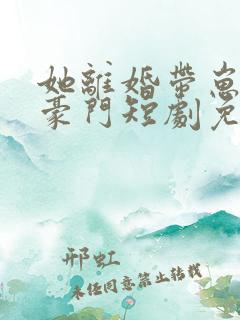 她離婚帶崽
豪門短劇免
邢虹
未经同意禁止转载